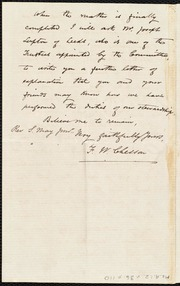 When the matter is finally
completed I will ask Mr. Joseph
Lupton of Leeds, who is one of the
Trustees appointed by the Committee
to write you a further letter of
explanation that you and your
friends may know how we have
performed the duties of our stewardship.
Believe me to remain,
Rev S. May Junr Very faithfully Yours,
F. W. Chesson